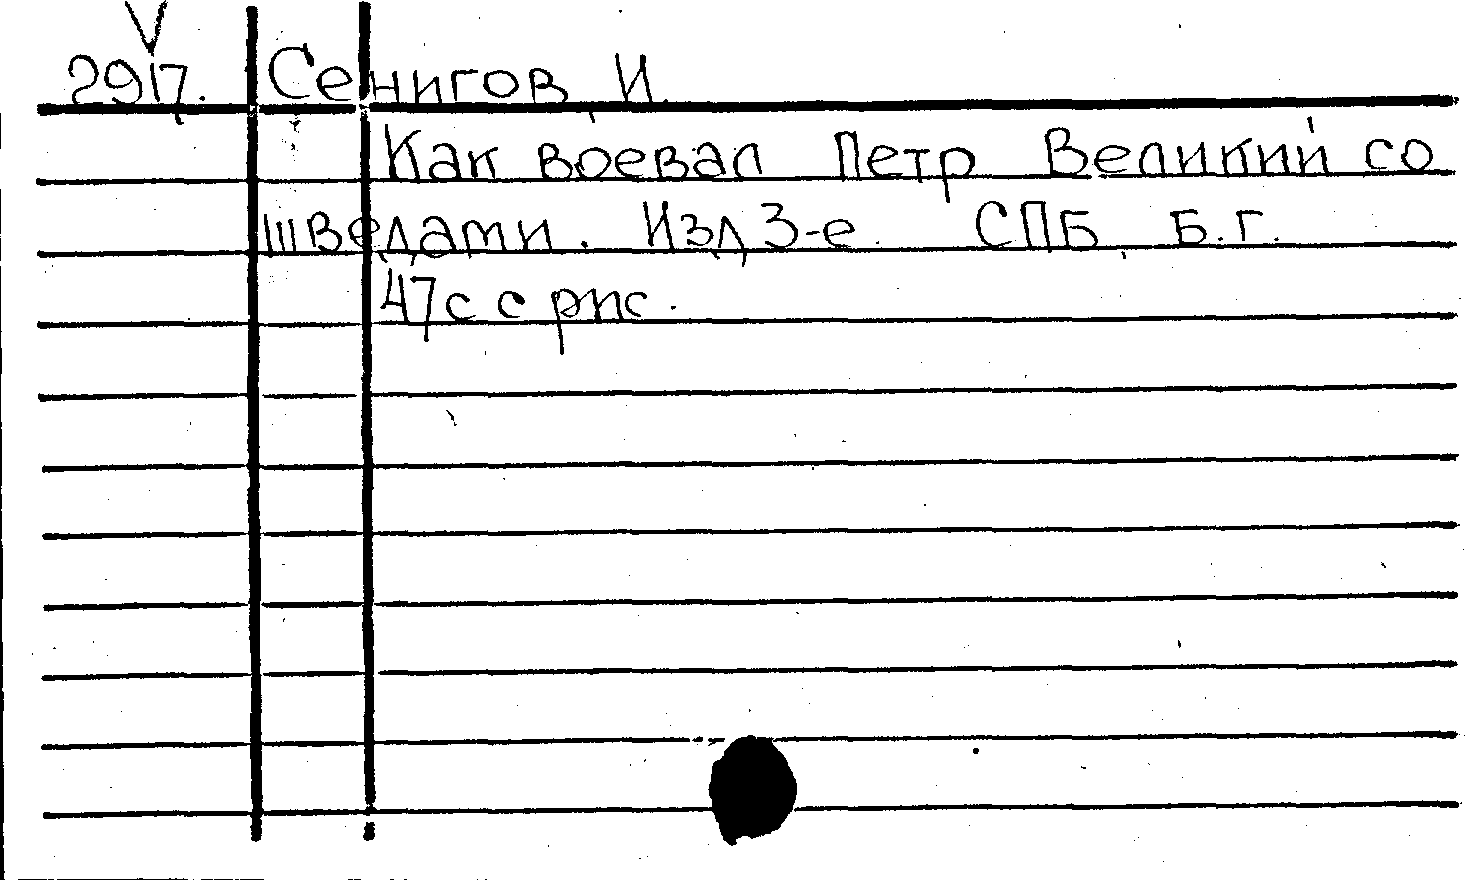 V
2917. Сенигов, И.
Как воевал Петр Великий со
шведами. Изд 3-е. СПБ, Б.г.
47с с рис.